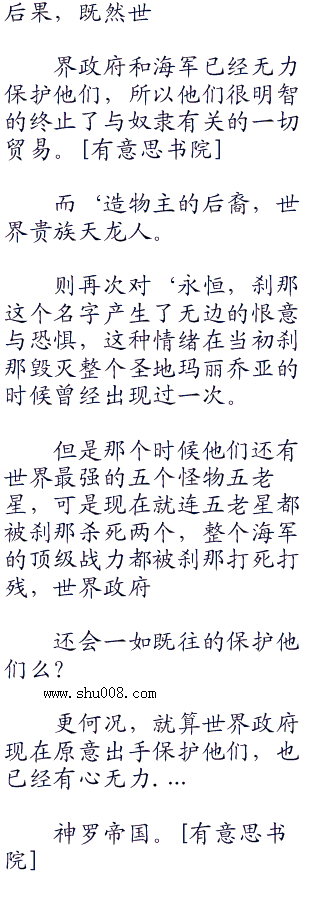 后果，既然世
界政府和海军已经无力
保护他们，所以他们很明智
的终止了与奴隶有关的一切
贸易。[有意思书院]
而‘造物主的后裔，世
界贵族天龙人。
则再次对‘永恒，刹那
这个名字产生了无边的恨意
与恐惧，这种情绪在当初刹
那毁灭整个圣地玛丽乔亚的
时候曾经出现过一次。
但是那个时候他们还有
世界最强的五个怪物五老
星，可是现在就连五老星都
被刹那杀死两个，整个海军
的顶级战力都被刹那打死打
残，世界政府
还会一如既往的保护他
们么？
www.shu008.com
更何况，就算世界政府
现在原意出手保护他们，也
已经有心无力....
神罗帝国。[有意思书
院]